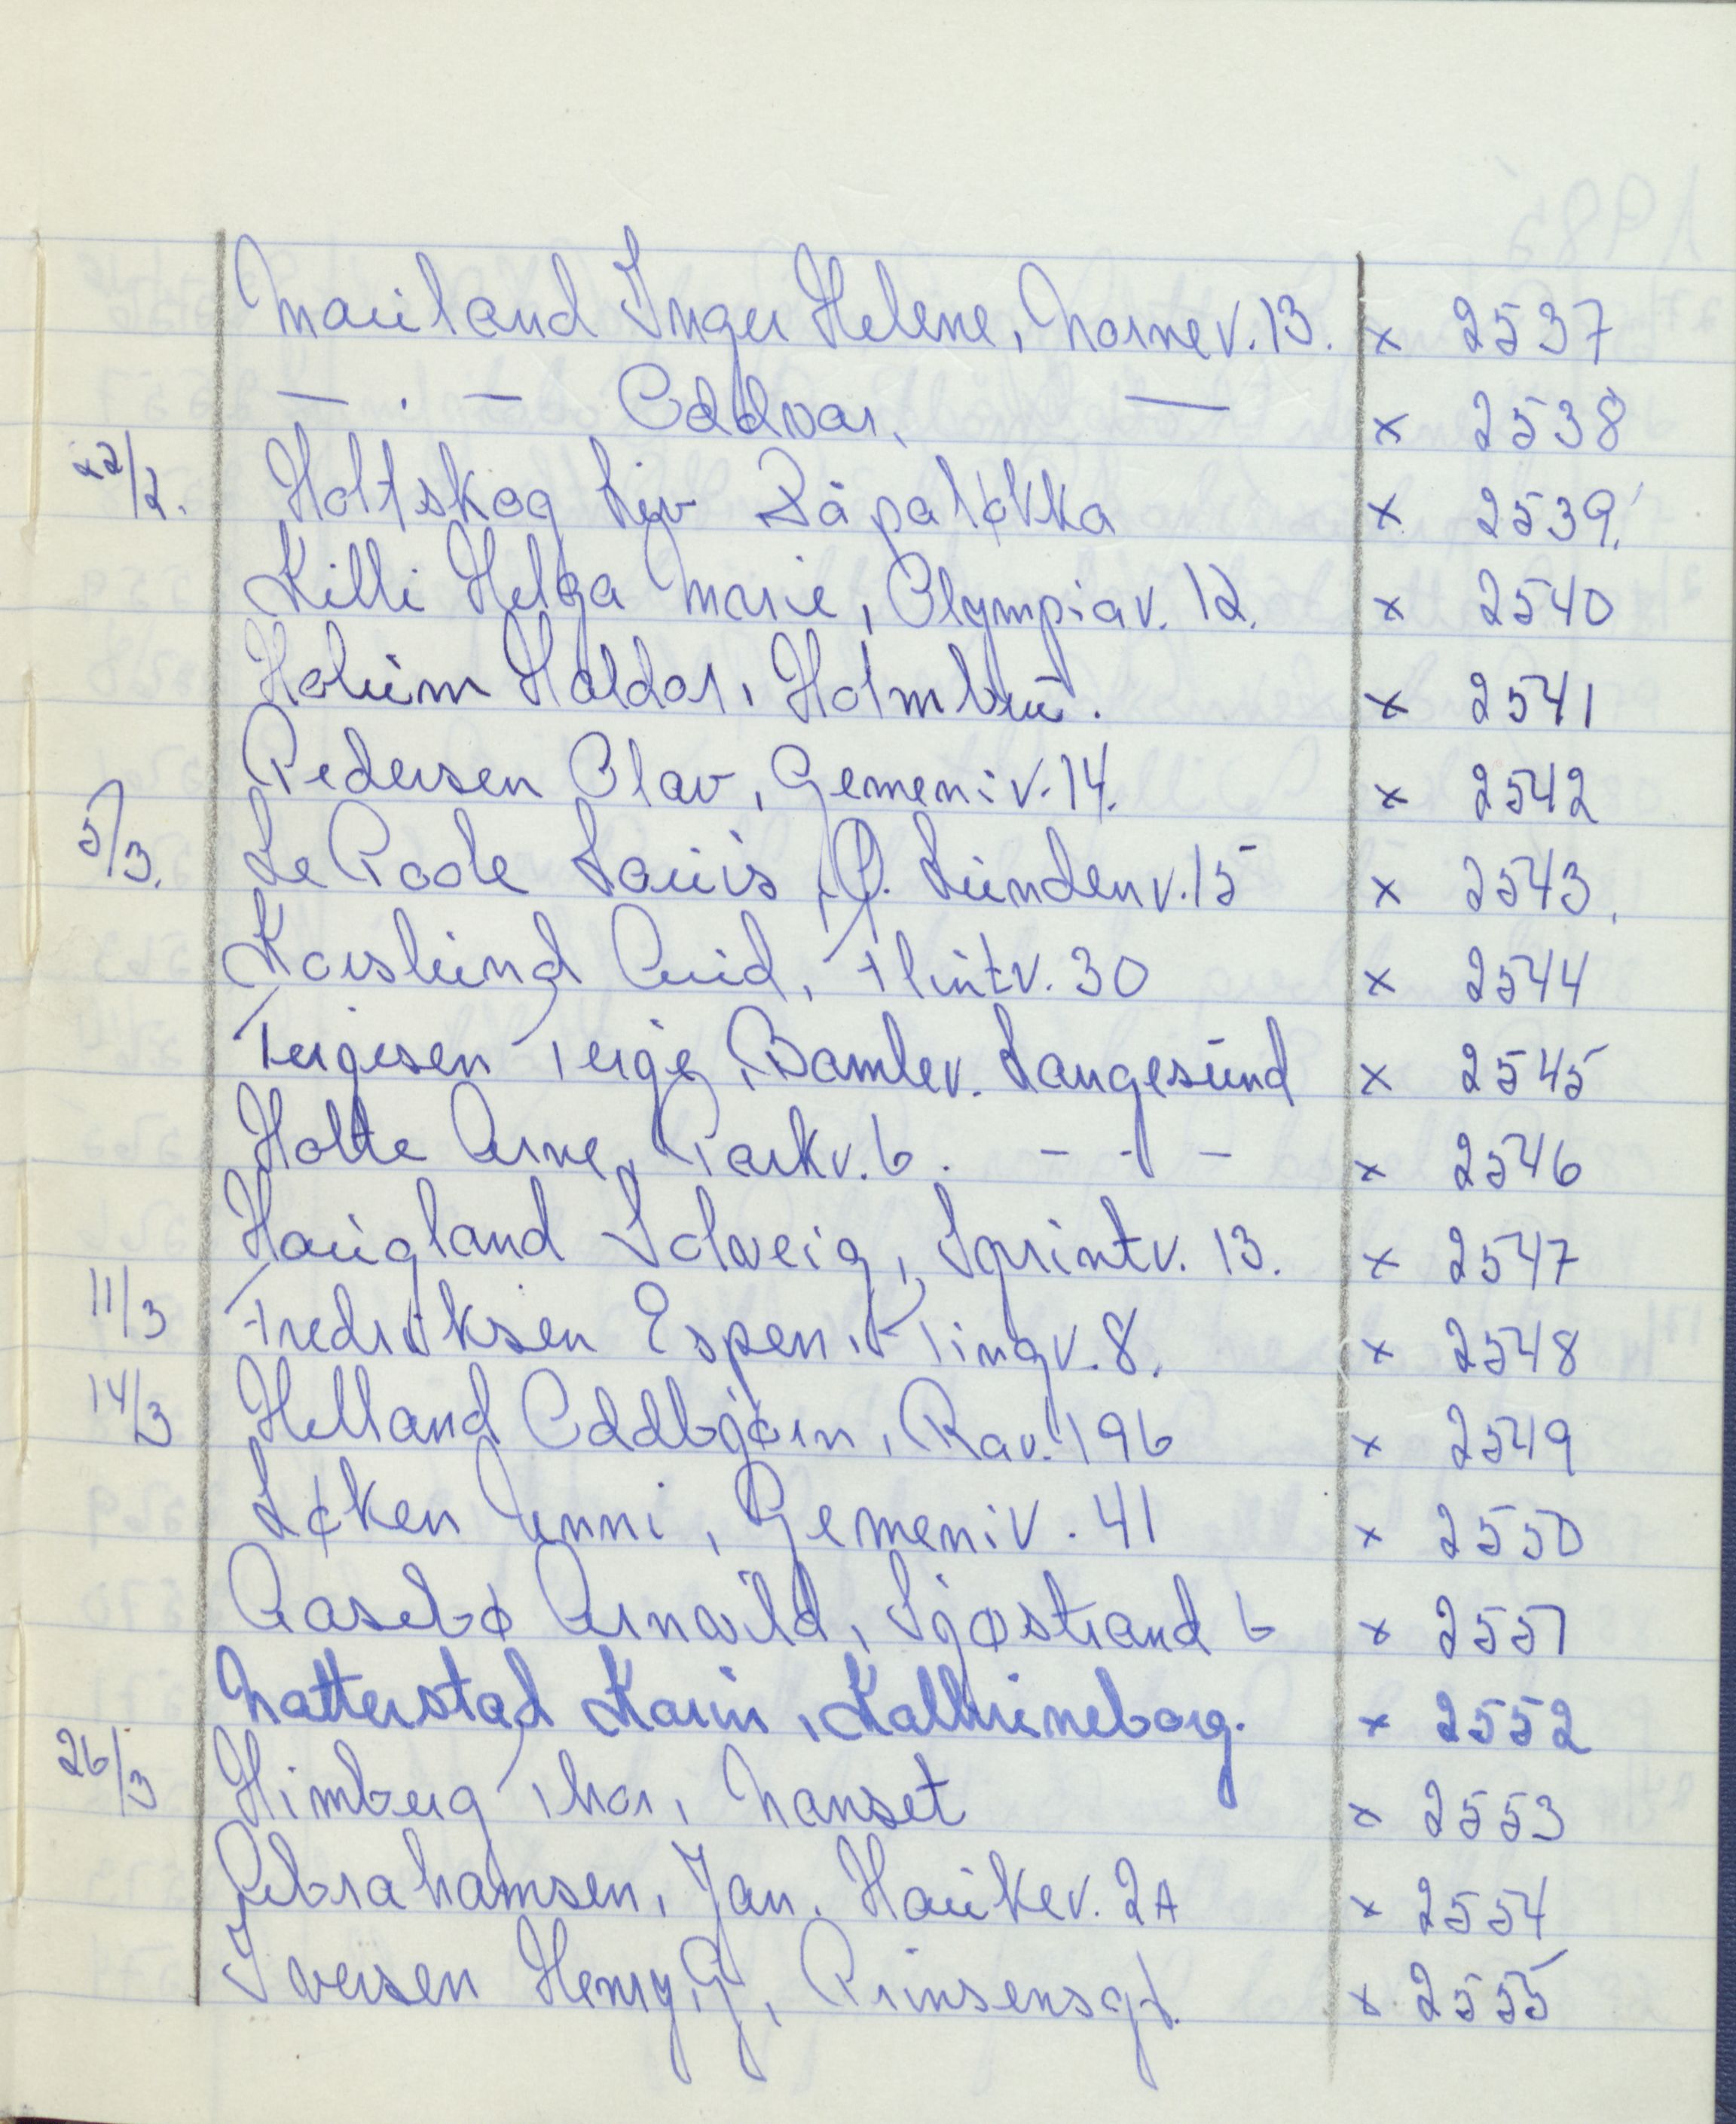 Mauland Inger Helene, Nornev. 13. x 2537
— . — Oddvar, — x 2538
22/2. Holtskog Liv Råpaløkka x 2539.
Killi Helga Marie, Olympiav. 12. x 2540
Holum Haldor, Holmbru. x 2541
Pedersen Olav, Gemeniv. 14. x 2542
5/3. Le Poole Louis, P. Lundenv. 15 x 2543.
Korslund Arid, Flintv. 30 x 2544
Terjesen Terje, Bamlev. Langesund x 2545
Holte Arne, Parkv. 6. - " - x 2546
Haugland Solveig, Sprintv. 13. x 2547
11/3 Fredriksen Espen, Tingv. 8. x 2548
14/3 Helland Oddbjørn, Rav. 196 x 2549
Løken Unni, Gemeniv. 41 x 2550
Aasebø Arnvild, Sjøstrand 6 x 2551
Natterstad Karin, Kathrineborg. x 2552
26/3 Himberg Thor, Nanset x 2553
Abrahamsen, Jan. Haukev. 2A x 2554
Iversen Henry, G, Prinsensgt. x 2555